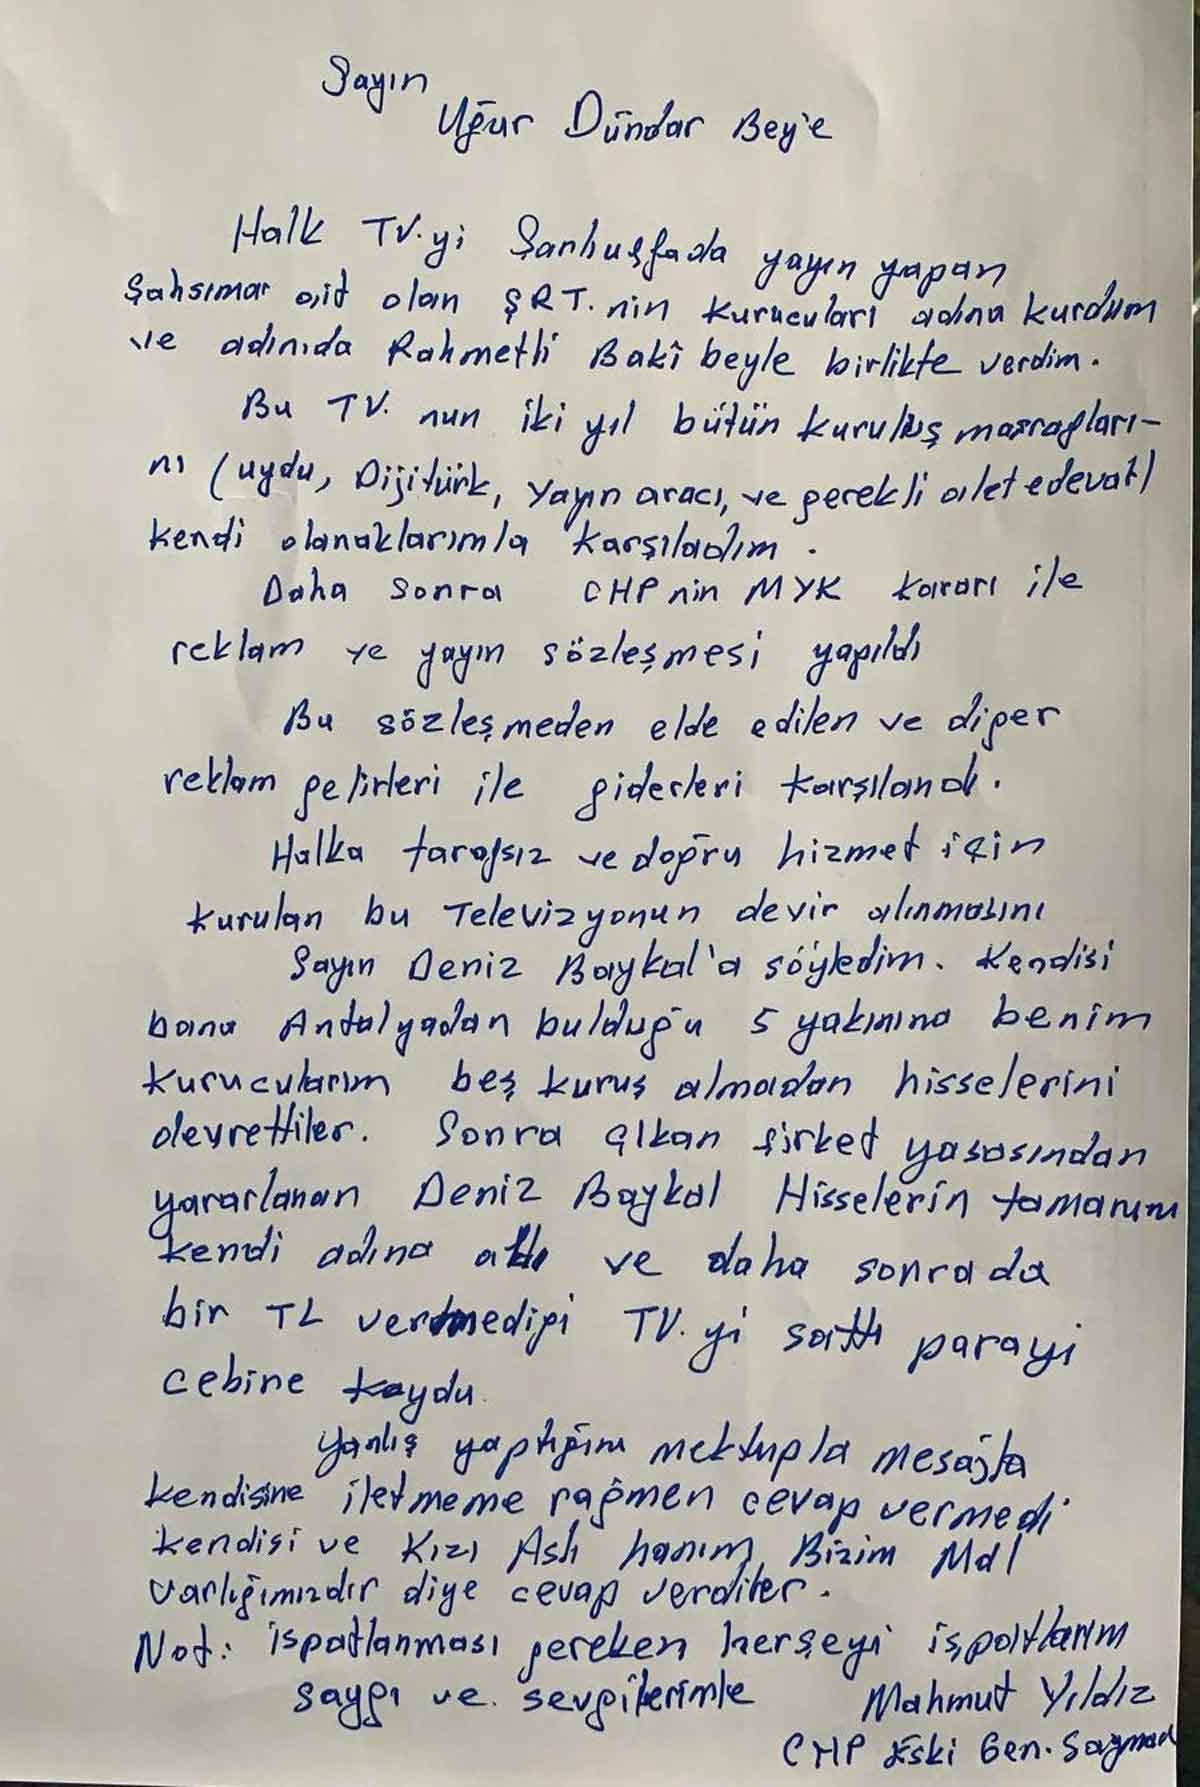 Sayın
Uğur Dündar Bey'e
Halk TV.yi Şanlıurfada yayın yapan
Şahsımar ait olan ŞRT.nin kurucuları adına kurdum
ve adınıda Rahmetli Bakî beyle birlikte verdim.
Bu TV. nun iki yıl bütün kuruluş masrafları-
nı (uydu, Dijitürk, Yayın aracı, ve gerekli alet edevat)
kendi olanaklarımla karşıladım.
Daha sonra CHP nin MYK kararı ile
reklam ve yayın sözleşmesi yapıldı
Bu sözleşmeden elde edilen ve diğer
reklam gelirleri ile giderleri karşılandı.
Halka tarafsız ve doğru hizmet için
kurulan bu Televizyonun devir alınmasını
Sayın Deniz Baykal'a söyledim. Kendisi
bana Antalyadan bulduğu 5 yakınına benim
kurucularım beş kuruş almadan hisselerini
devrettiler. Sonra çıkan şirket yasasından
yararlanan Deniz Baykal Hisselerin tamamını
kendi adına aldı ve daha sonrada
bir TL vermediği TV.yi sattı parayı
cebine koydu.
Yanlış yaptığını mektupla mesajla
kendisine iletmeme rağmen cevap vermedi
kendisi ve Kızı Aslı hanım Bizim Mal
varlığımızdır diye cevap verdiler.
Not: ispatlanması gereken herşeyi ispatlarım
saygı ve sevgilerimle Mahmut Yıldız
CHP Eski Gen. Sayman